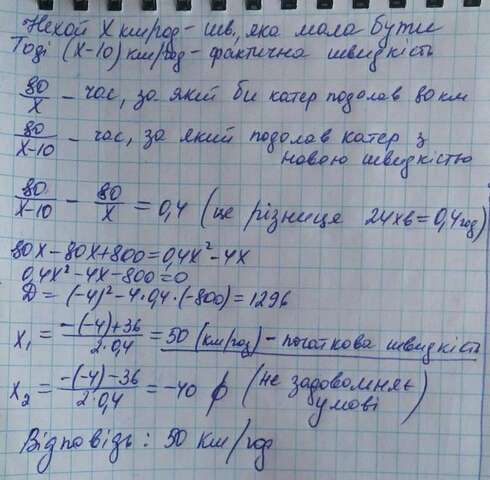 Нехай X км/год - шв., яка мала бути
Тоді (X-10) км/год - фактична швидкість
80/X - час, за який би катер подолав 80 км
80/X-10 - час, за який подолав катер з
новою швидкістю
80/X-10 - 80/X = 0,4 (це різниця 24хв = 0,4 год)
80X-80X+800=0,4X²-4X
0,4X²-4X-800=0
D = (-4)²-4·0,4·(-800) = 1296
X₁ = -(-4)+36/2·0,4 = 50 (км/год) - початкова швидкість
X₂ = -(-4)-36/2·0,4 = -40 ∅ (не задовольняє
умові)
Відповідь: 50 км/год